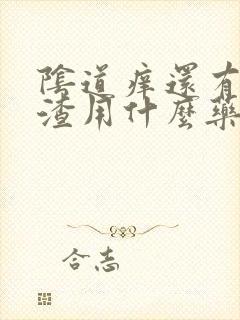 陰道痒還有
渣用什麼藥
合志